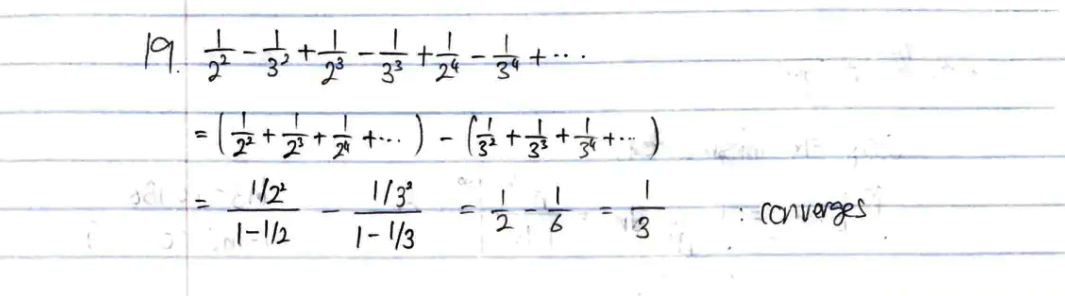 19. 1/2² - 1/3² + 1/2³ - 1/3³ + 1/2⁴ - 1/3⁴ + ...
= (1/2² + 1/2³ + 1/2⁴ + ...) - (1/3² + 1/3³ + 1/3⁴ + ...)
= (1/2²)/(1-1/2) - (1/3²)/(1-1/3) = 1/2 - 1/6 = 1/3 : converges